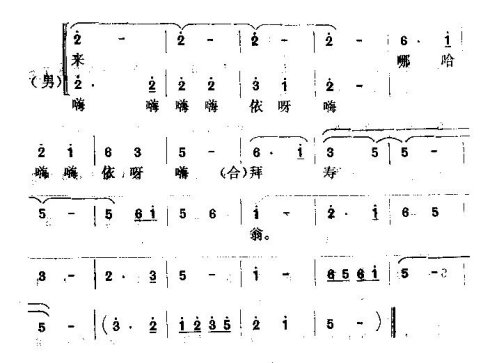 2̇ - | 2̇ - | 2̇ - | 2̇ - | 6 · 1̇
来 哪 哈
(男) 2̇ · 2̇ | 2̇ 2̇ | 3̇ 1̇ | 2̇ -
嗨 嗨 嗨 嗨 依 呀 嗨
2̇ 1̇ | 6 3 | 5 - | 6 · 1̇ | 3̇ 5 | 5 -
嗨 嗨 依 呀 嗨 (合) 拜 寿
5 - | 5 6 1̇ | 5 6 | 1̇ - | 2̇ · 1̇ | 6 5
翁。
3 - | 2 · 3 | 5 - | 1̇ - | 6 5 6 1̇ | 5 -
5 - | (3̇ · 2̇ | 1̇ 2̇ 3̇ 5̇ | 2̇ 1̇ | 5 - )